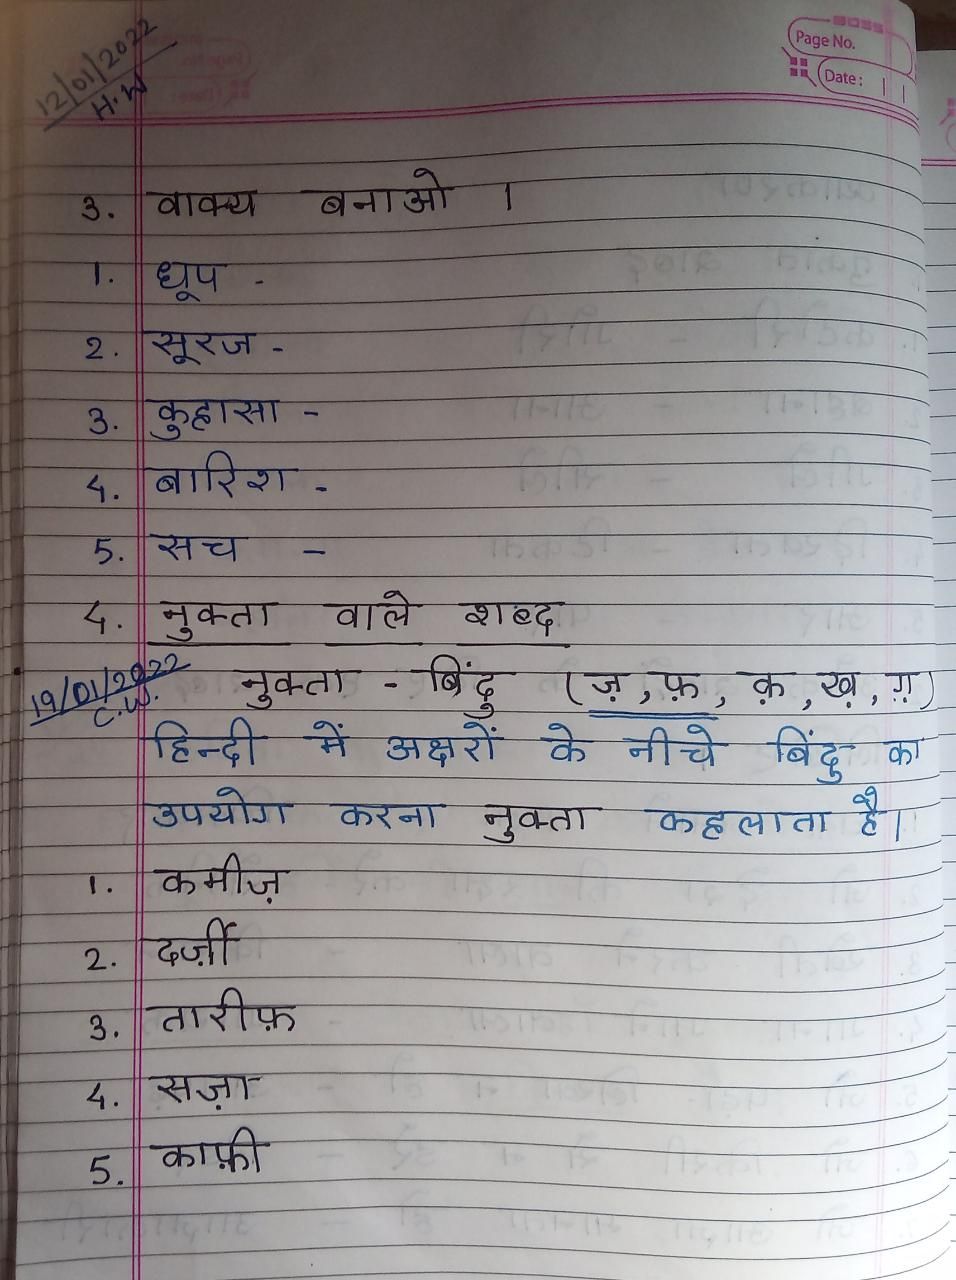 12/01/2022
H.W
Page No.
Date:
3. वाक्य बनाओ ।
1. धूप -
2. सूरज -
3. कुहासा -
4. बारिश -
5. सच -
4. नुक्ता वाले शब्द
19/01/2022
C.W.
नुक्ता - बिंदु (ज़, फ़, क़, ख़, ग़)
हिन्दी में अक्षरों के नीचे बिंदु का
उपयोग करना नुक्ता कहलाता है।
1. कमीज़
2. दर्ज़ी
3. तारीफ़
4. सज़ा
5. काफ़ी